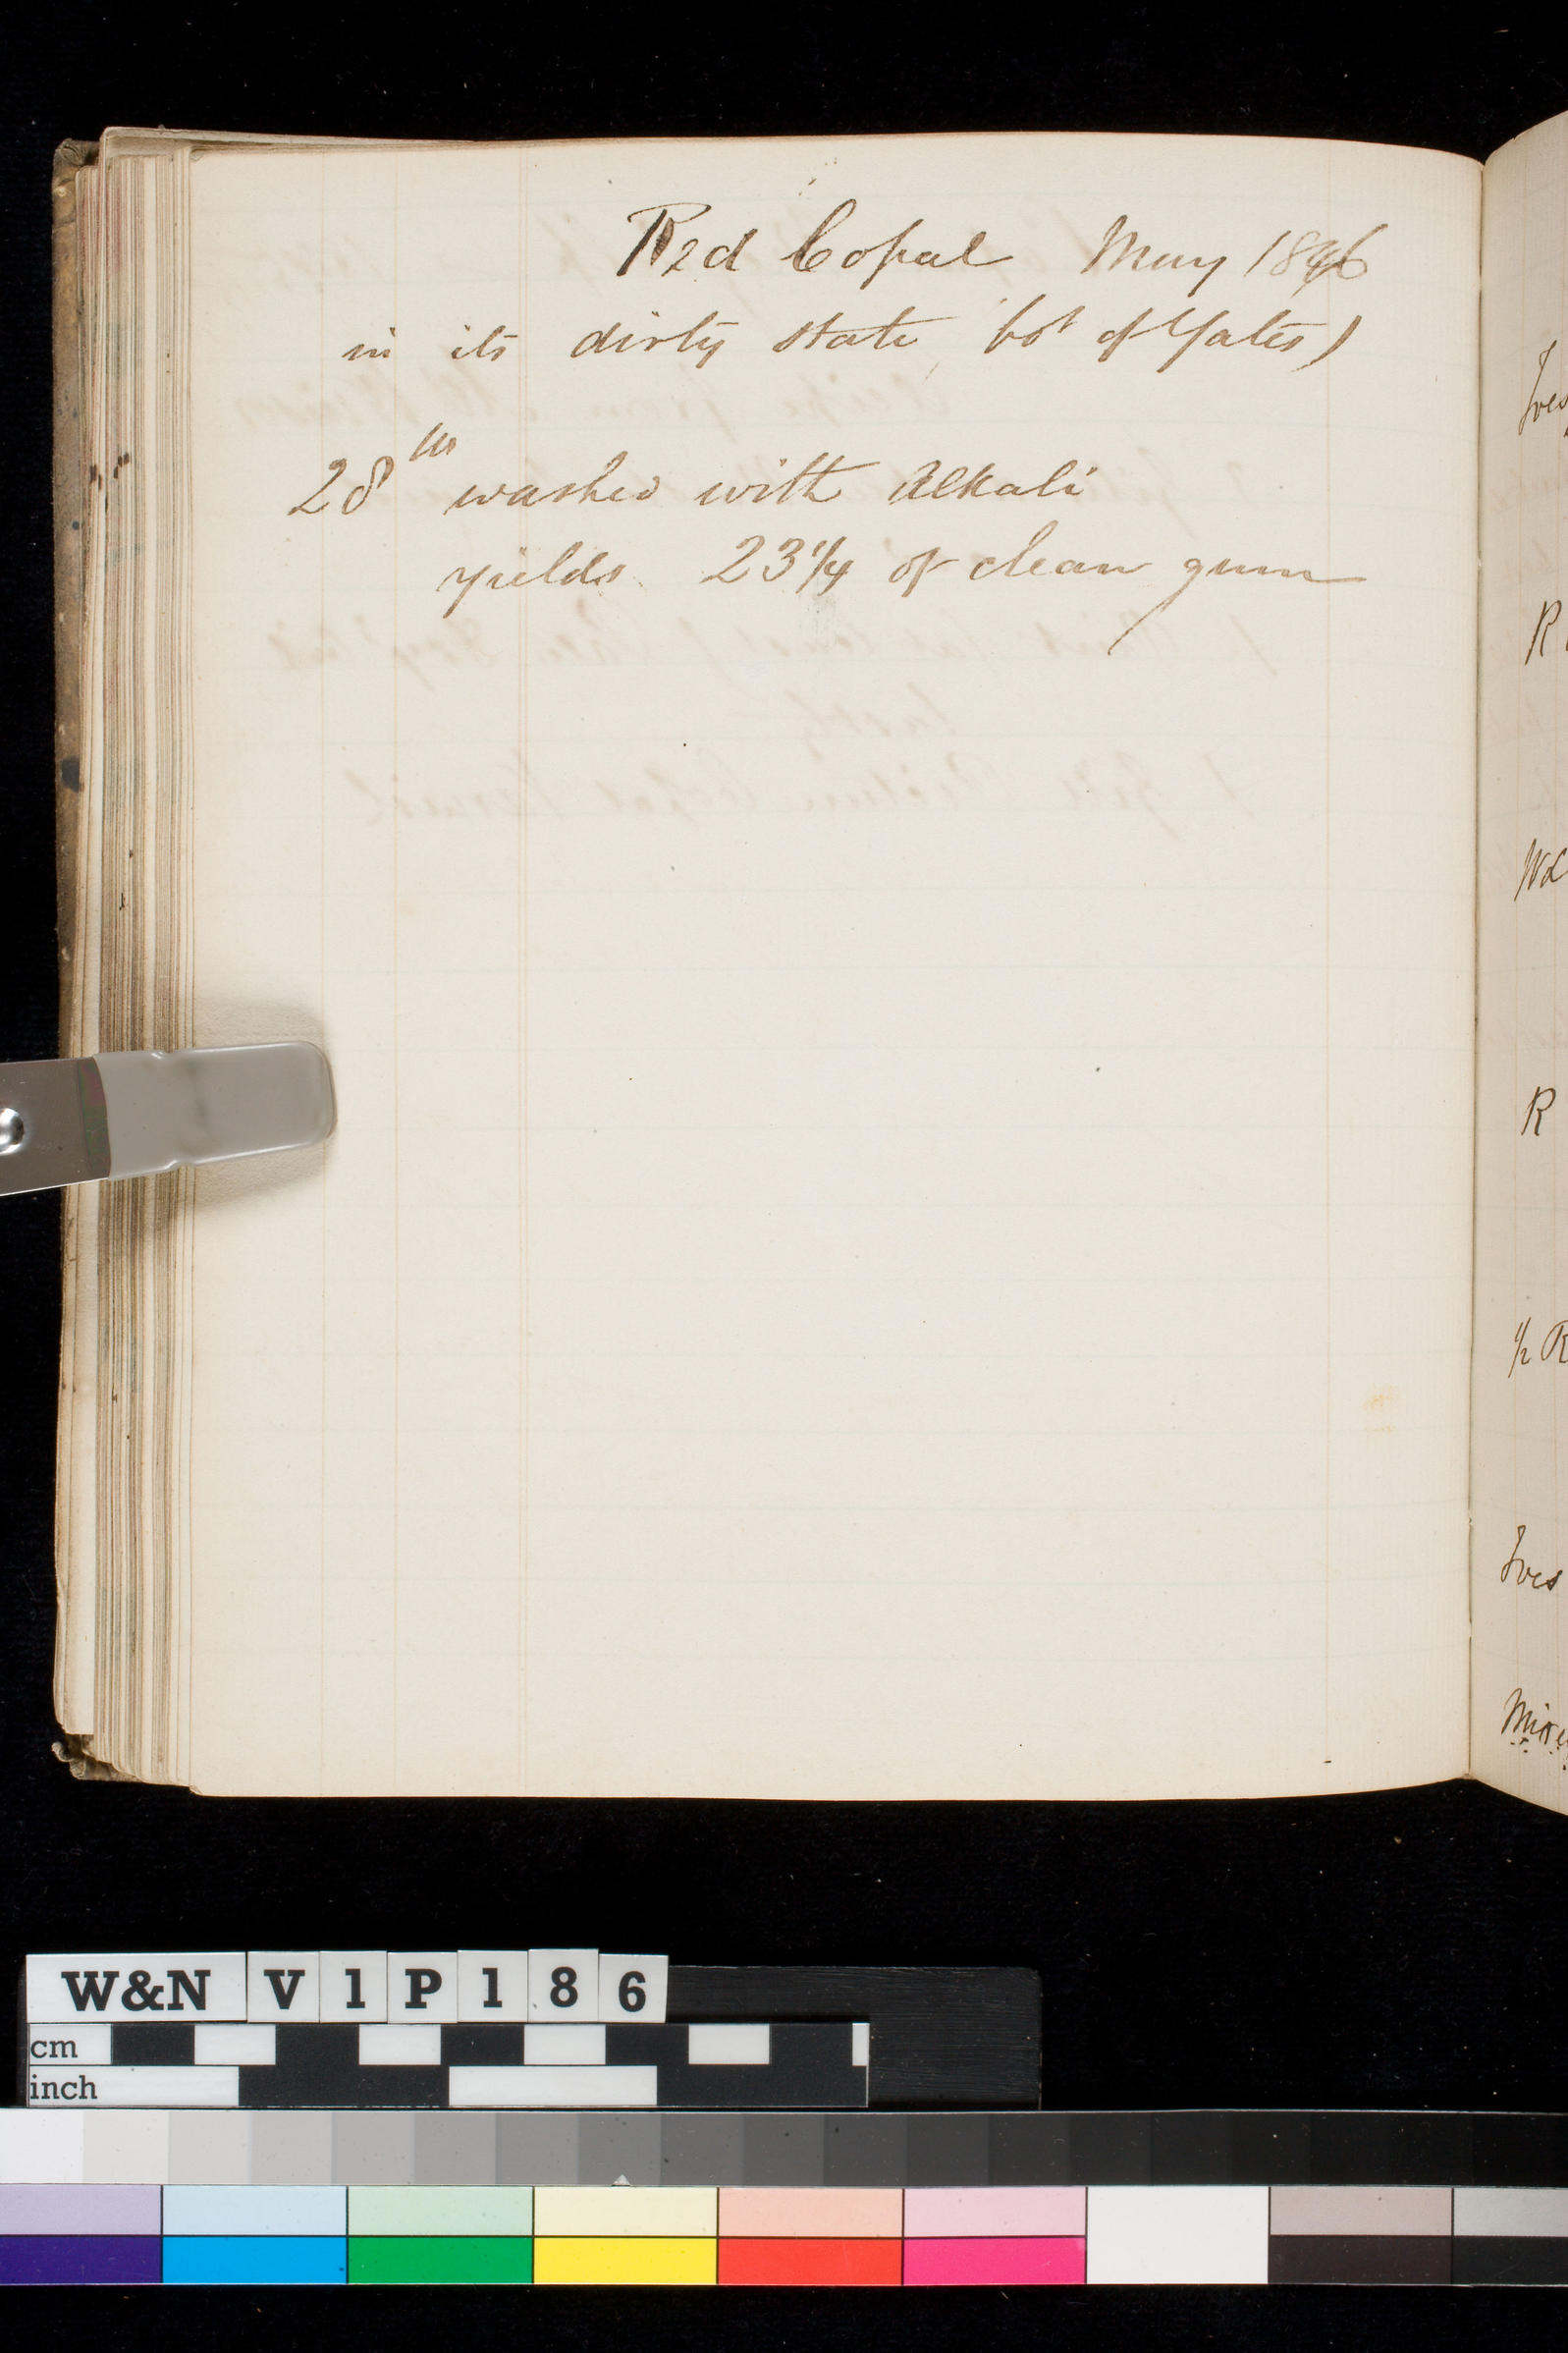 Red Copal May 1846
in its dirty state bot of Yates)
28 lbs washed with Alkali
yields 23 1/4 of clean gum
Ives
R
Wd
R
1/2 R
Ives
W&N V1P186
cm
inch